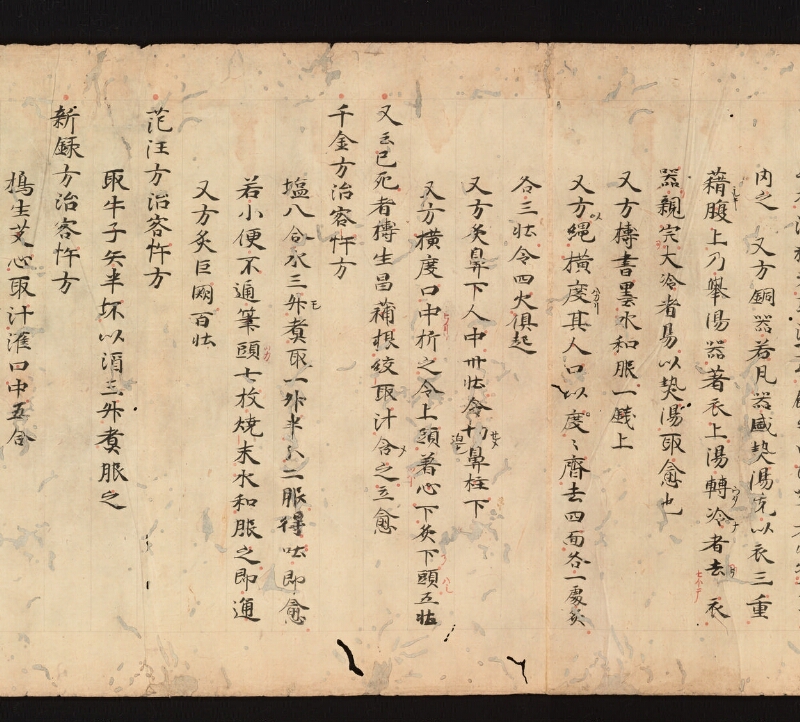 内之 又方銅器若凡器盛熱湯先以衣三重
藉腹上乃舉湯器著衣上湯轉冷者去衣
器親宍大冷者易以熱湯取愈也
又方擣書墨水和服一錢上
又方以繩横度其人口以度〻齊去四面各一處灸
各三壮令四火俱起
又方灸鼻下人中卅壮令切鼻柱下
又方横度口中折之令上頭著心下灸下頭五壮
又云已死者擣生昌蒲根絞取汁含之立愈
千金方治客忤方
塩八合水三升煮取一升半分二服得吐即愈
若小便不通筆頭七枚焼末水和服之即通
又方灸巨闕百壮
范汪方治客忤方
取牛子矢半坏以酒三升煮服之
新録方治客忤方
搗生艾心取汁潅口中五合